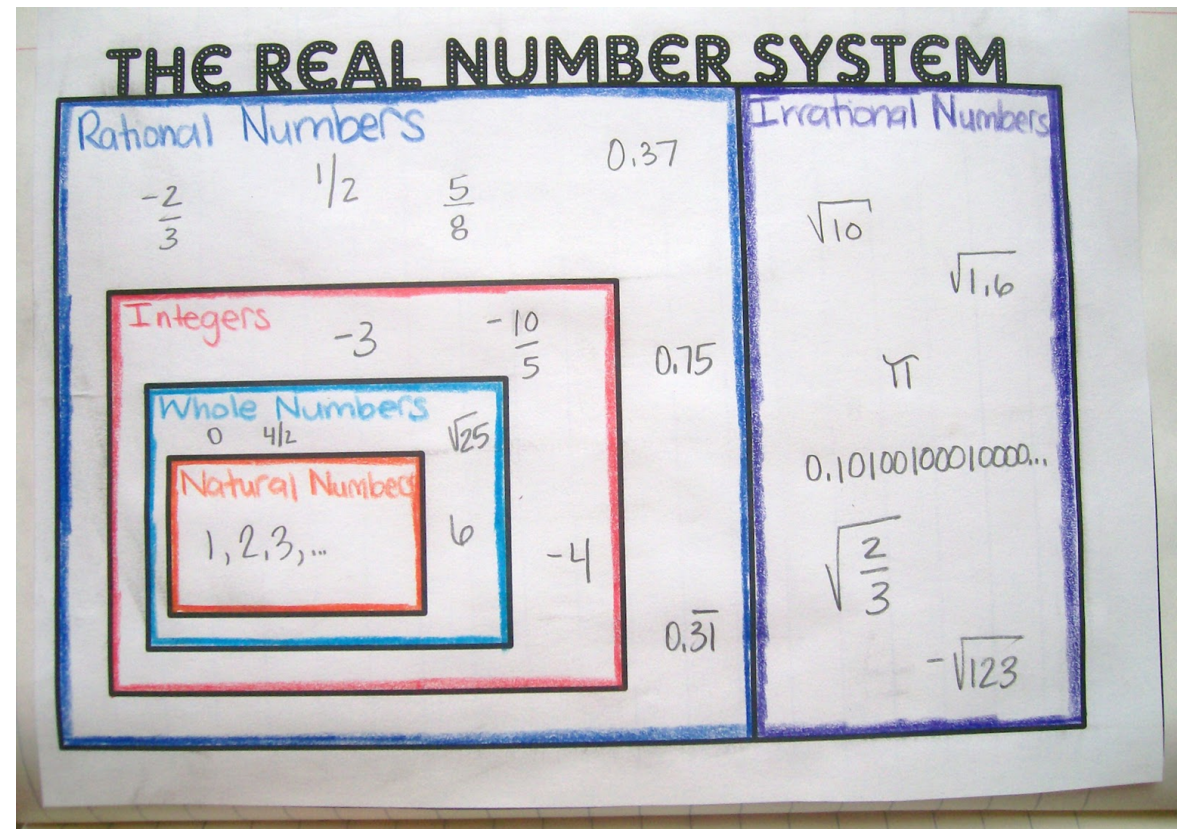 THE REAL NUMBER SYSTEM
Rational Numbers
-2/3
1/2
5/8
0.37
Integers
-3
-10/5
0.75
Whole Numbers
0 4/2
√25
Natural Numbers
1, 2, 3, ...
6
-4
0.3̅1̅
Irrational Numbers
√10
√1.6
π
0.10100100010000...
√2/3
-√123